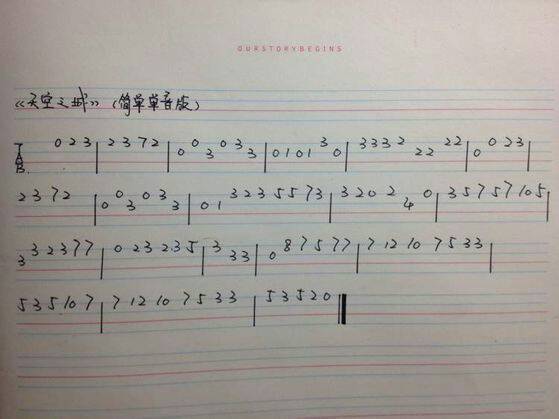 OURSTORYBEGINS
《天空之城》（简单单音版）
TAB. 0 2 3 | 2 3 7 2 | 0 0 3 0 3 3 | 0 1 0 1 3 0 | 3 3 3 2 2 2 2 2 | 0 0 2 3 |
2 3 7 2 | 0 0 3 0 3 3 | 0 1 3 2 3 5 5 7 3 | 3 2 0 2 4 0 | 3 5 7 5 7 10 5 |
3 3 2 3 7 7 | 0 2 3 2 3 5 | 3 3 3 | 0 8 7 5 7 7 | 7 12 10 7 5 3 3 |
5 3 5 10 7 | 7 12 10 7 5 3 3 | 5 3 5 2 0